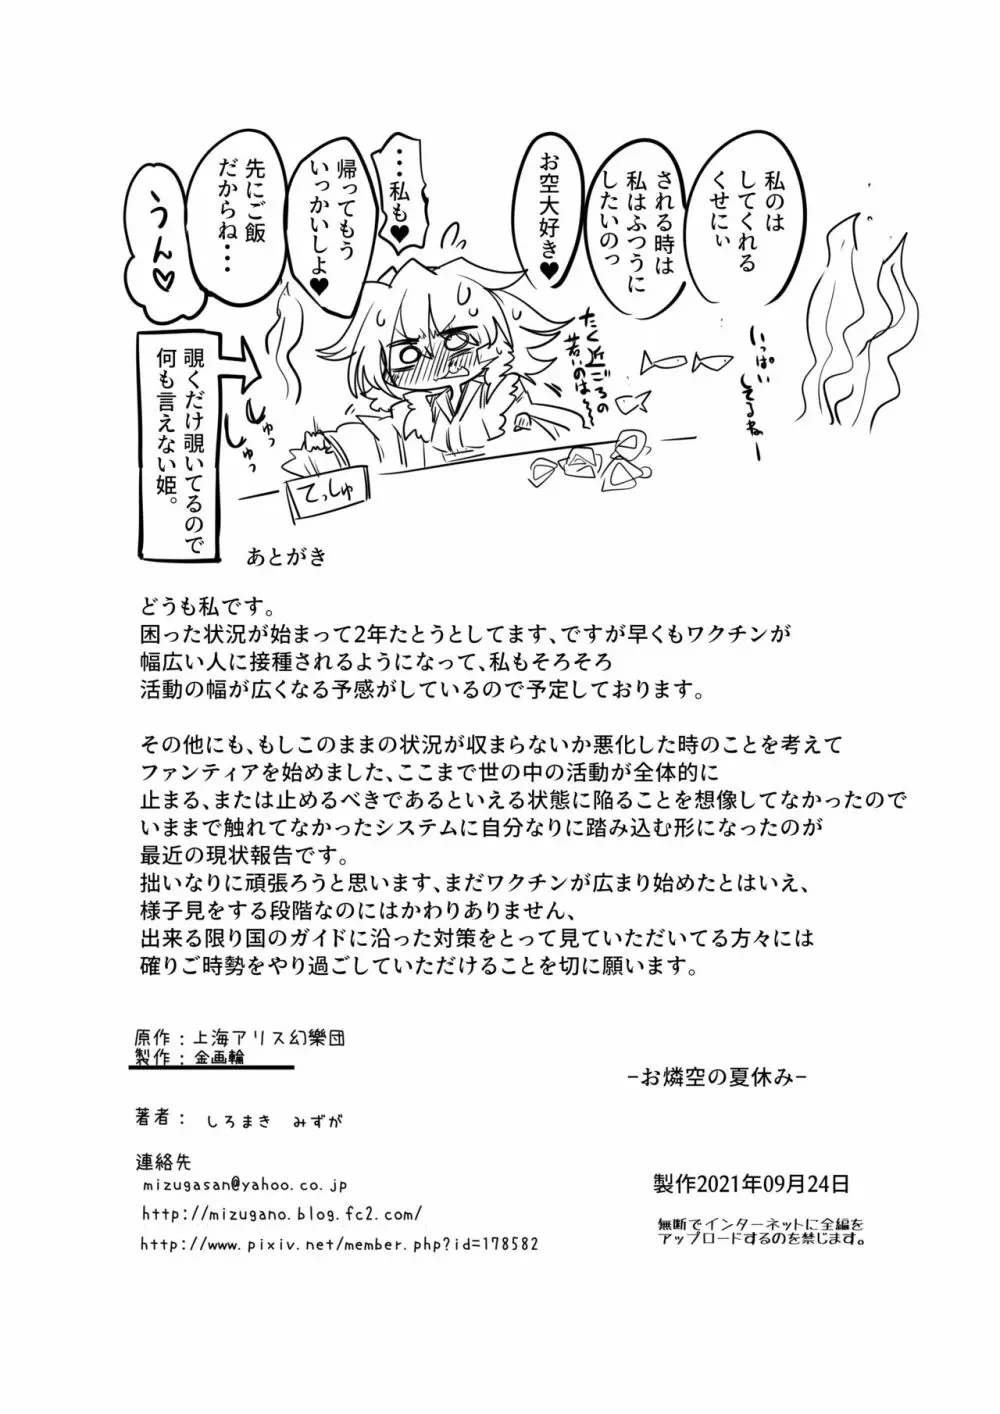 私のは
してくれる
くせにぃ
される時は
私はふつうに
したいのっ
お空大好き♥
・・・私も♥
帰ってもう
いっかいしよ♥
先にご飯
だからね・・・
うん♡
いっぱい
してるねー
たく近ごろの
若いのは〜
しゅっ
しゅっ
てっしゅ
覗くだけ覗いてるので
何も言えない姫。
あとがき
どうも私です。
困った状況が始まって2年たとうとしてます、ですが早くもワクチンが
幅広い人に接種されるようになって、私もそろそろ
活動の幅が広くなる予感がしているので予定しております。
その他にも、もしこのままの状況が収まらないか悪化した時のことを考えて
ファンティアを始めました、ここまで世の中の活動が全体的に
止まる、または止めるべきであるといえる状態に陥ることを想像してなかったので
いままで触れてなかったシステムに自分なりに踏み込む形になったのが
最近の現状報告です。
拙いなりに頑張ろうと思います、まだワクチンが広まり始めたとはいえ、
様子見をする段階なのにはかわりありません、
出来る限り国のガイドに沿った対策をとって見ていただいてる方々には
確りご時勢をやり過ごしていただけることを切に願います。
原作：上海アリス幻樂団
製作：金画輪
－お燐空の夏休み－
著者： しろまき　みずが
連絡先
mizugasan@yahoo.co.jp
http://mizugano.blog.fc2.com/
http://www.pixiv.net/member.php?id=178582
製作2021年09月24日
無断でインターネットに全編を
アップロードするのを禁じます。